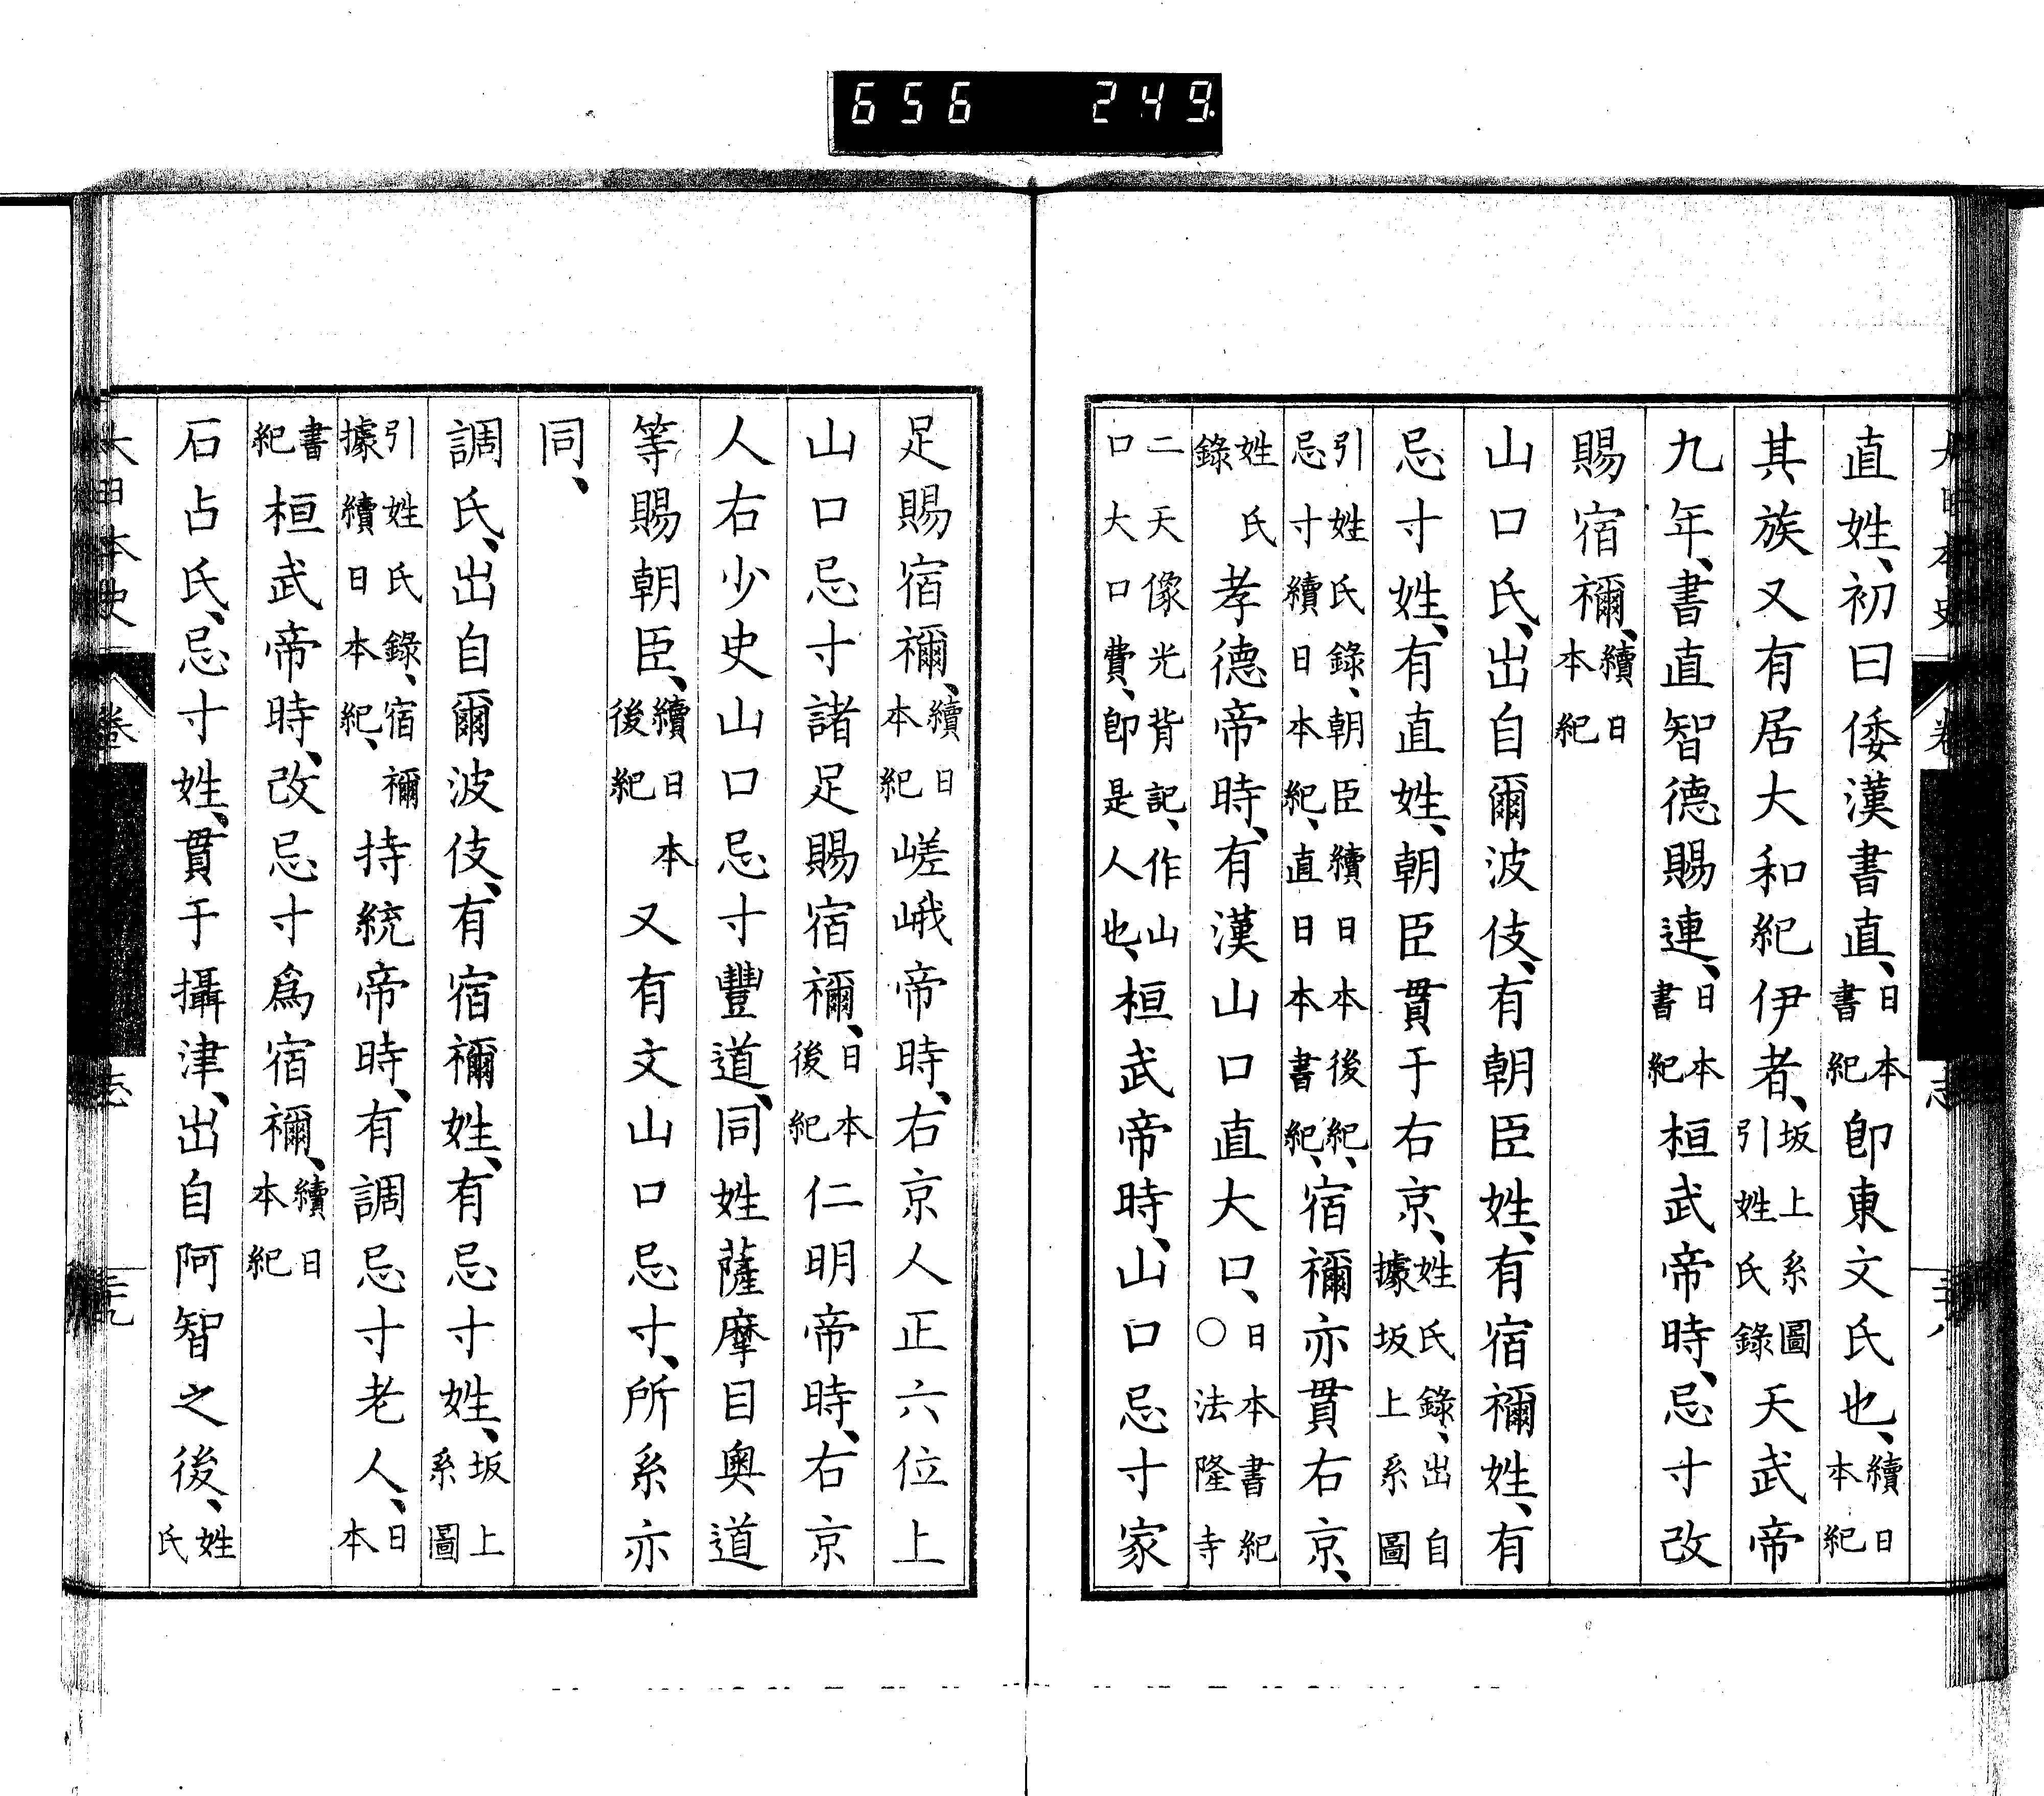 656 249
直姓、初曰倭漢書直、日本書紀卽東文氏也、續日本紀
其族又有居大和紀伊者、坂上系圖引姓氏錄天武帝
九年、書直智德賜連、日本書紀桓武帝時、忌寸改
賜宿禰、續日本紀
山口氏、出自爾波伎、有朝臣姓、有宿禰姓、有
忌寸姓、有直姓、朝臣貫于右京、姓氏錄、出自據坂上系圖
引姓氏錄、朝臣續日本後紀、忌寸續日本紀、直日本書紀、宿禰亦貫右京、
姓氏錄孝德帝時、有漢山口直大口、日本書紀○法隆寺
二天像光背記、作山口大口費、卽是人也、桓武帝時、山口忌寸家
足賜宿禰、續日本紀嵯峨帝時、右京人正六位上
山口忌寸諸足賜宿禰、日本後紀仁明帝時、右京
人右少史山口忌寸豐道、同姓薩摩目奧道
等賜朝臣、續日本後紀又有文山口忌寸、所系亦
同、
調氏、出自爾波伎、有宿禰姓、有忌寸姓、坂上系圖
引姓氏錄、宿禰據續日本紀、持統帝時、有調忌寸老人、日本
書紀桓武帝時、改忌寸爲宿禰、續日本紀
石占氏、忌寸姓、貫于攝津、出自阿智之後、姓氏
大日本史 卷 志